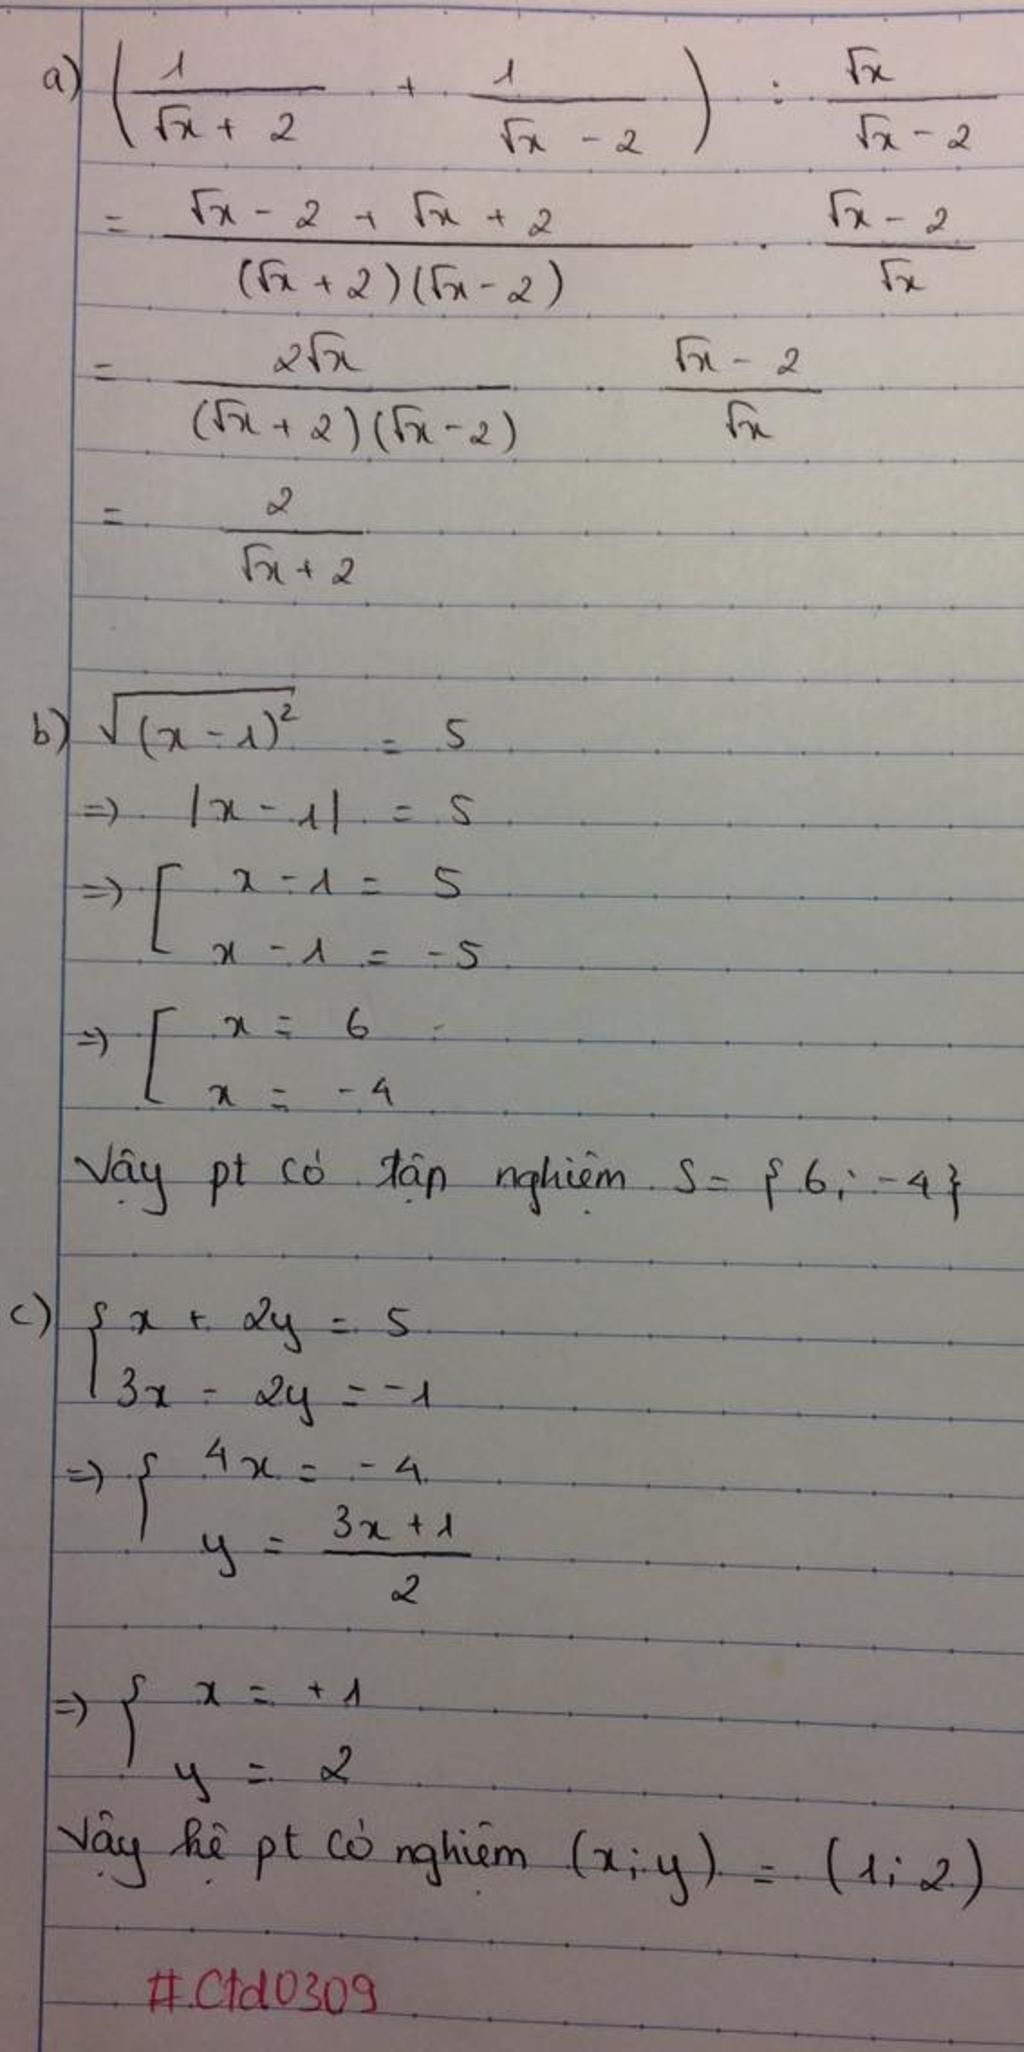 a) ( 1/(√x + 2) + 1/(√x - 2) ) : √x/(√x - 2)
= (√x - 2 + √x + 2)/((√x + 2)(√x - 2)) . (√x - 2)/√x
= 2√x/((√x + 2)(√x - 2)) . (√x - 2)/√x
= 2/(√x + 2)
b) √((x - 1)²) = 5
=> |x - 1| = 5
=> [ x - 1 = 5
x - 1 = -5
=> [ x = 6
x = -4
Vậy pt có tập nghiệm S = {6; -4}
c) { x + 2y = 5
3x - 2y = -1
=> { 4x = -4
y = (3x + 1)/2
=> { x = +1
y = 2
Vậy hệ pt có nghiệm (x; y) = (1; 2)
#Ctd0309